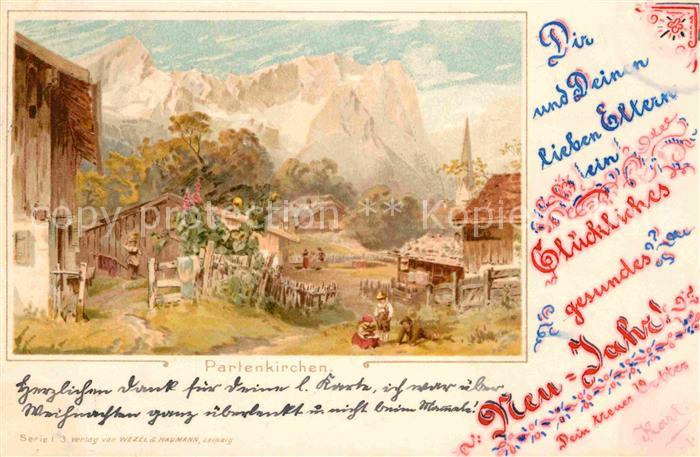 Dir
und Deinen
lieben Eltern
ein
Glückliches
gesundes
Neu=Jahr!
Dein treuer Vetter
Karl.
copy protection ** Kopie
Partenkirchen.
Herzlichen Dank für Deine l. Karte, ich war über
Weihnachten ganz überlenkt u. nicht beim
Serie I 3. Verlag von WEZEL & NAUMANN, Leipzig